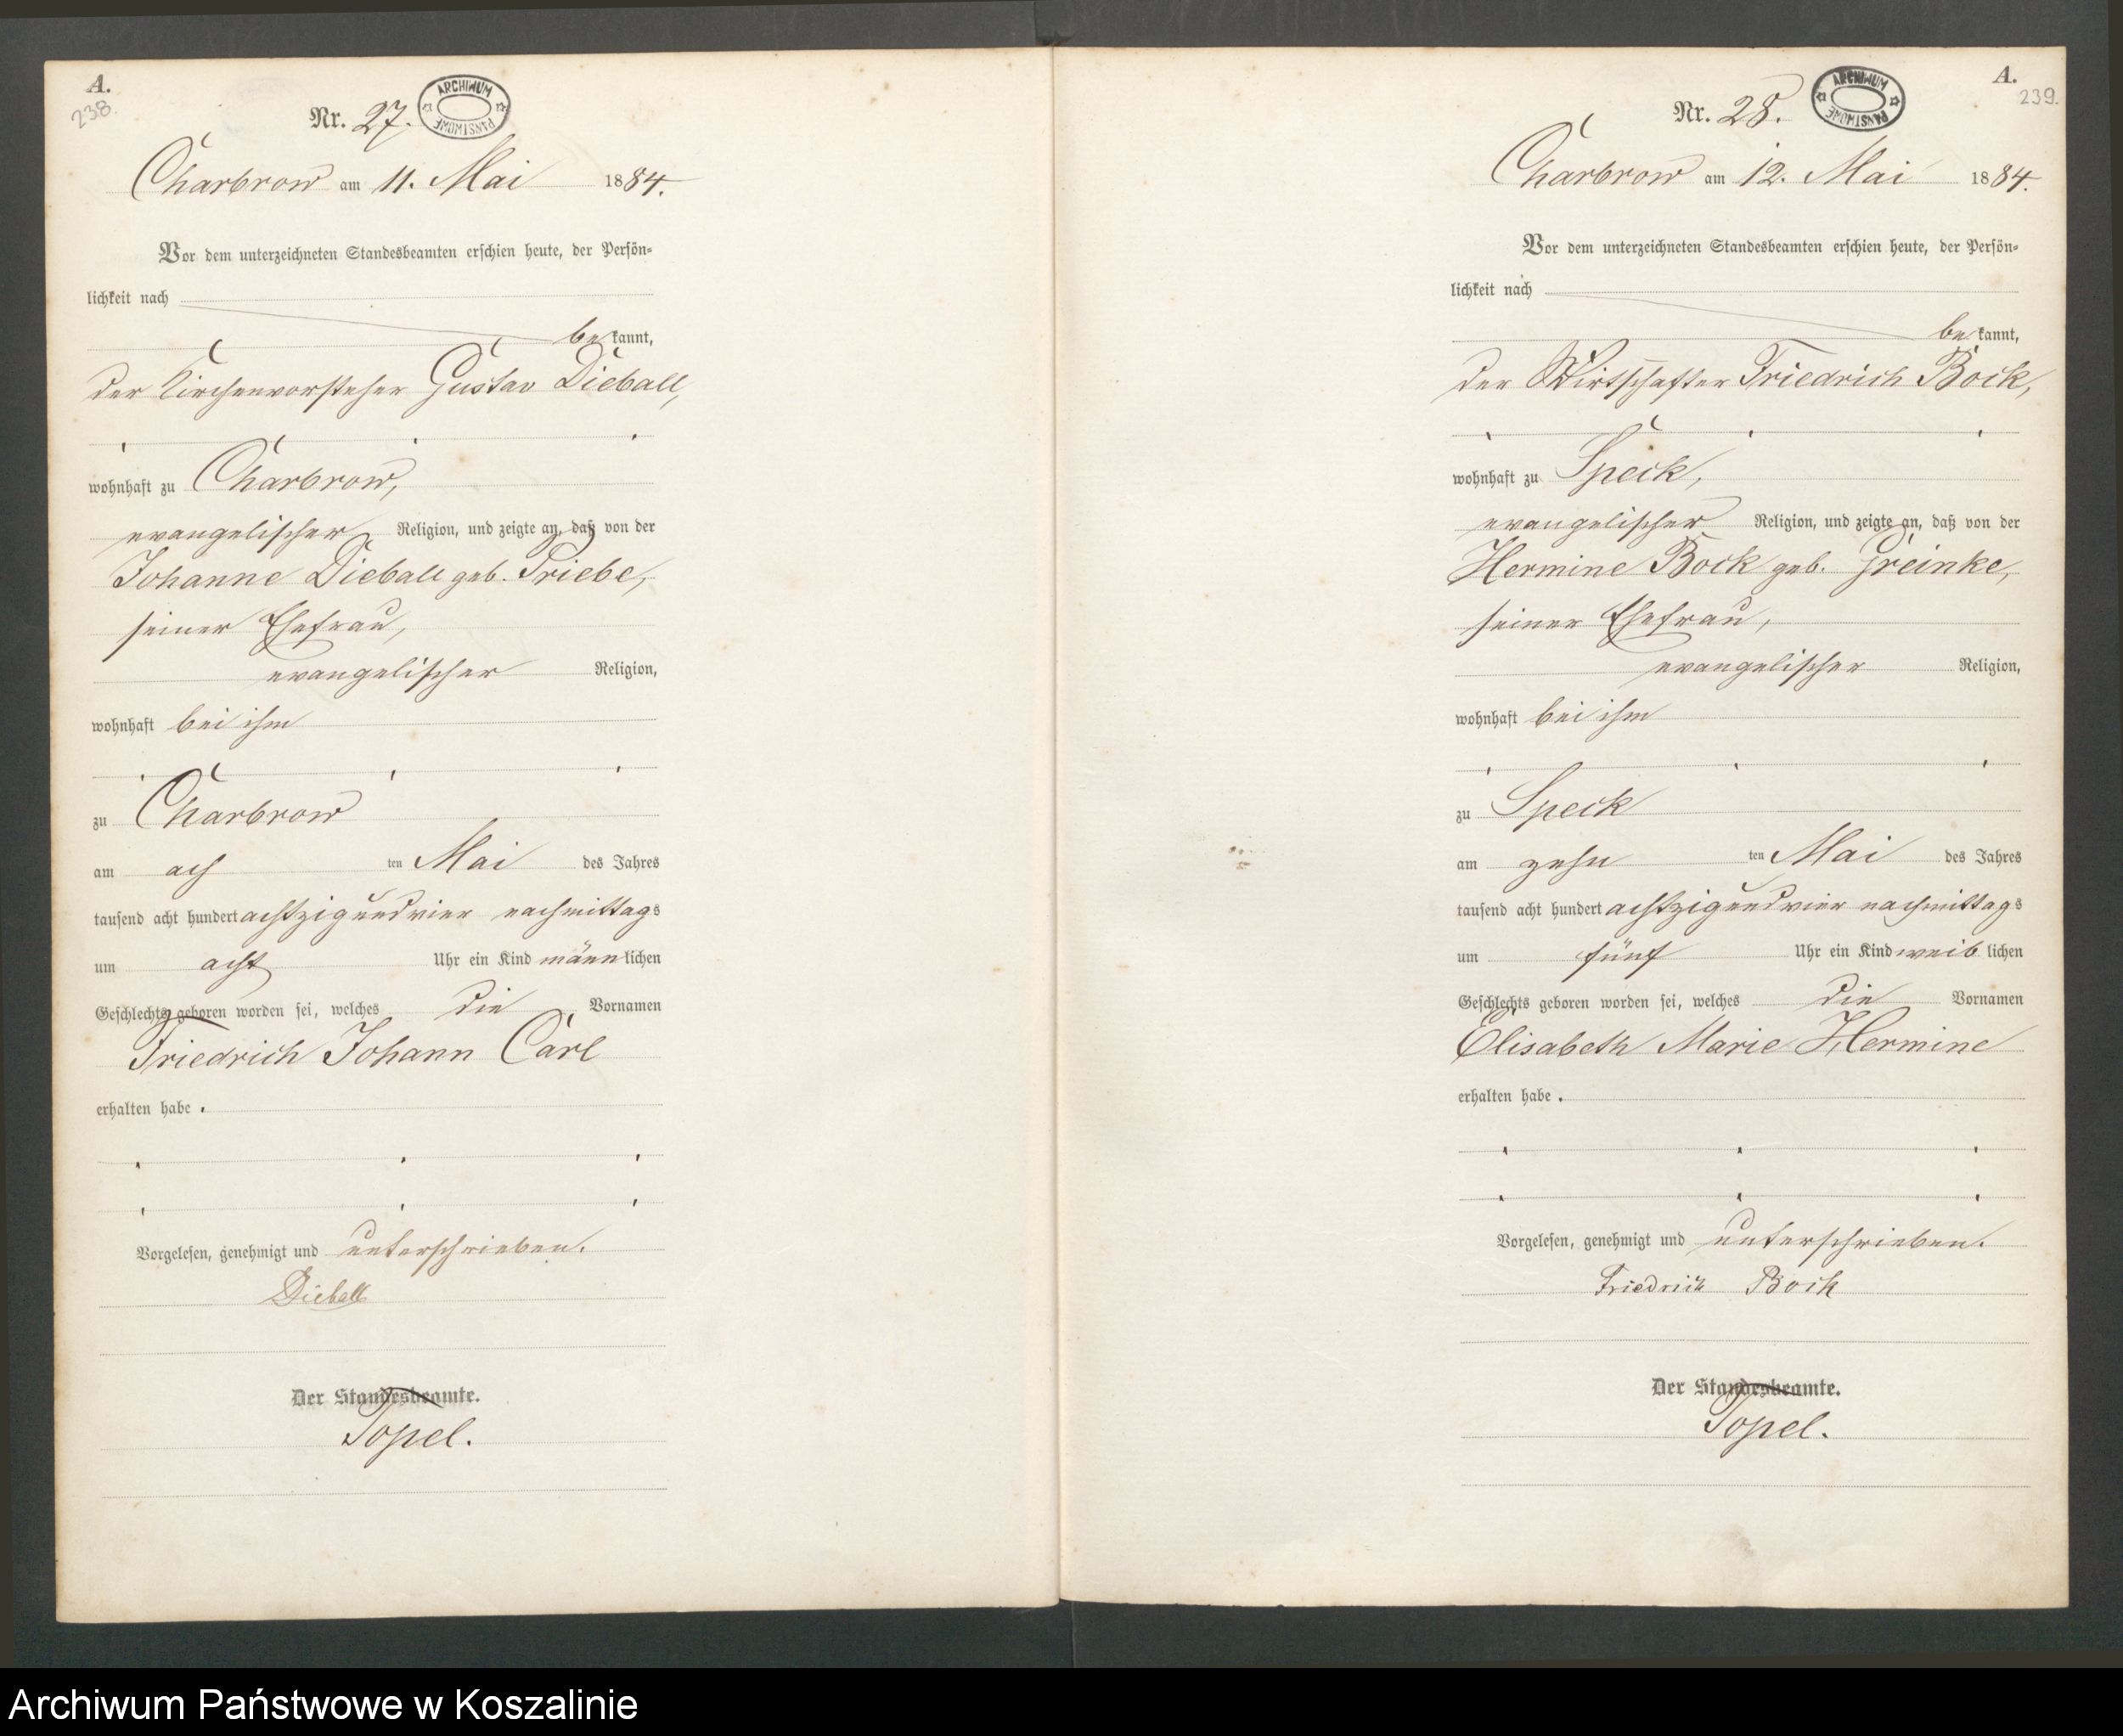 A.
238.
Nr. 27.
ARCHIWUM PAŃSTWOWE
Charbrow am 11. Mai 1884.
Vor dem unterzeichneten Standesbeamten erschien heute, der Persön-
lichkeit nach
bekannt,
der Kirchenvorsteher Gustav Dieball,
wohnhaft zu Charbrow,
evangelischer Religion, und zeigte an, daß von der
Johanne Dieball geb. Priebe,
seiner Ehefrau,
evangelischer Religion,
wohnhaft bei ihm
zu Charbrow
am ach ten Mai des Jahres
tausend acht hundert achtzig und vier nachmittags
um acht Uhr ein Kind männlichen
Geschlechts geboren worden sei, welches die Vornamen
Friedrich Johann Carl
erhalten habe.
Vorgelesen, genehmigt und unterschrieben.
Dieball
Der Standesbeamte.
Topel.
A.
239.
Nr. 28.
ARCHIWUM PAŃSTWOWE
Charbrow am 12. Mai 1884.
Vor dem unterzeichneten Standesbeamten erschien heute, der Persön-
lichkeit nach
bekannt,
der Wirtschafter Friedrich Bock,
wohnhaft zu Speck,
evangelischer Religion, und zeigte an, daß von der
Hermine Bock geb. Greinke,
seiner Ehefrau,
evangelischer Religion,
wohnhaft bei ihm
zu Speck
am zehn ten Mai des Jahres
tausend acht hundert achtzig und vier nachmittags
um fünf Uhr ein Kind weiblichen
Geschlechts geboren worden sei, welches die Vornamen
Elisabeth Marie Hermine
erhalten habe.
Vorgelesen, genehmigt und unterschrieben.
Friedrich Bock
Der Standesbeamte.
Topel.
Archiwum Państwowe w Koszalinie